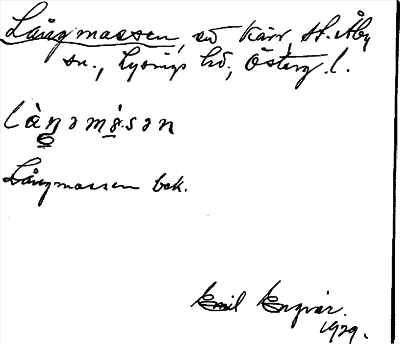 Långmassen, sw Kärr, St. Åby
sn., Lysings hd, Österg. l.
làŋəmɵ̀sən
Långmassen bok.
Emil Engvär.
1929.